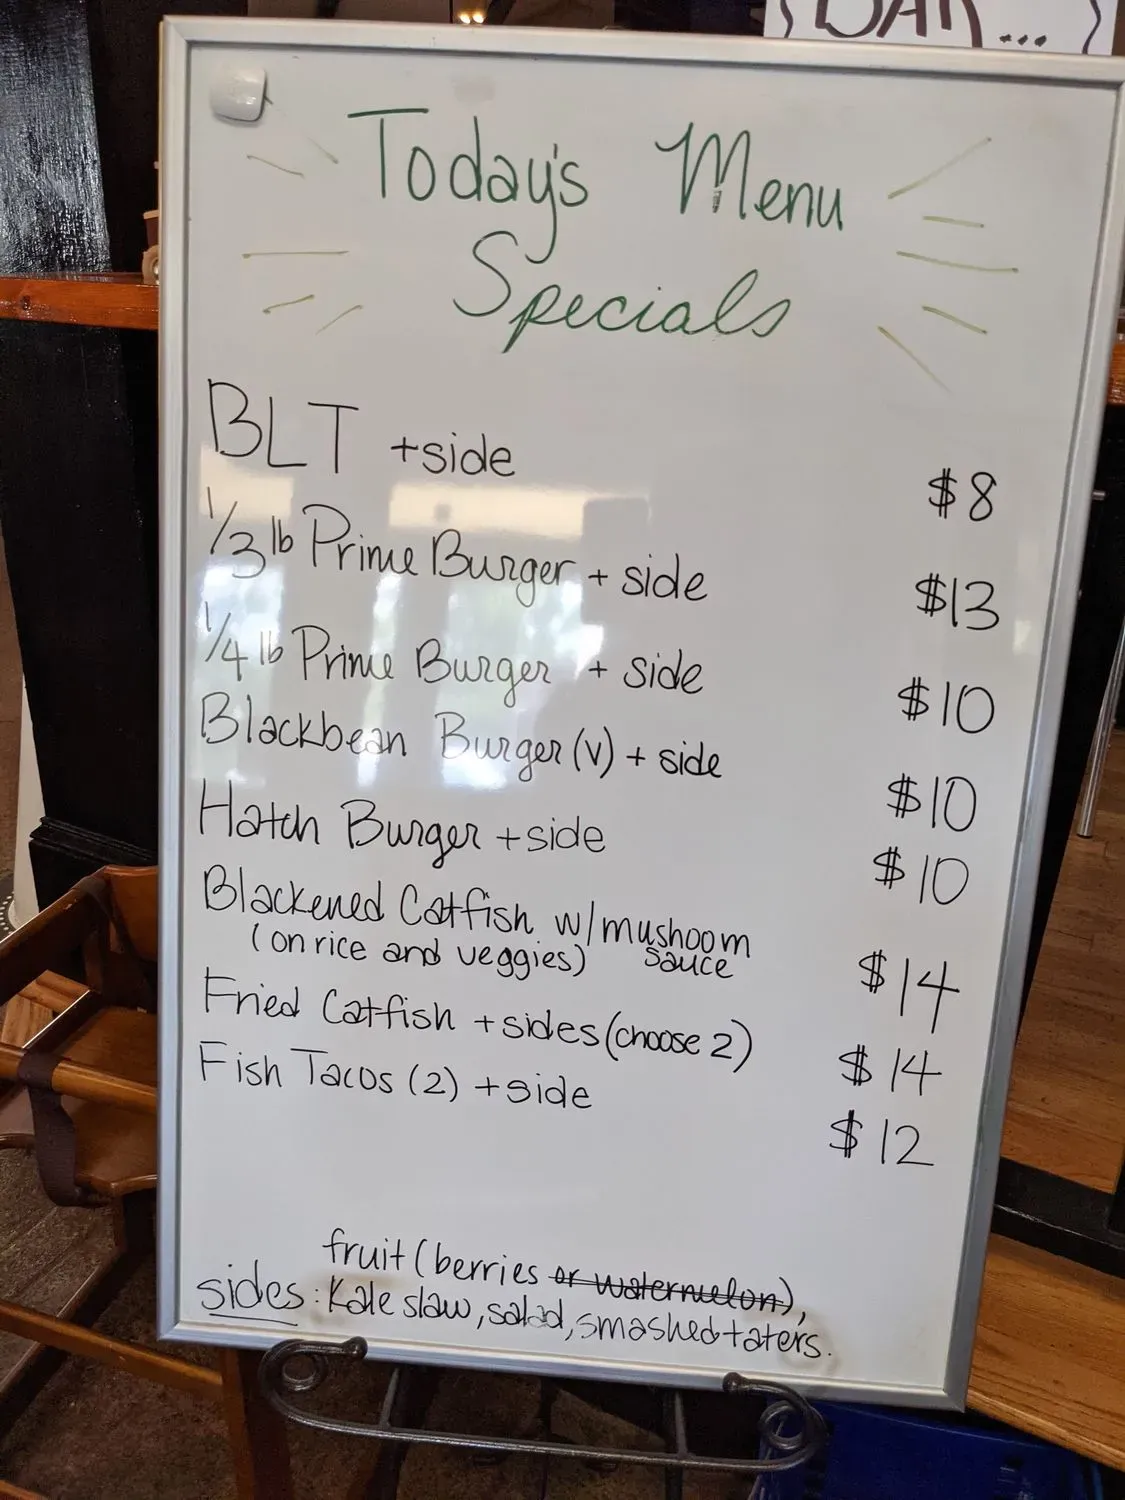 BAR...
Today's Menu
Specials
BLT +side $8
1/3 lb Prime Burger + side $13
1/4 lb Prime Burger + side $10
Blackbean Burger (V) + side $10
Hatch Burger +side $10
Blackened Catfish w/mushoom $14
(on rice and veggies) sauce
Fried Catfish +sides (choose 2) $14
Fish Tacos (2) +side $12
fruit (berries or watermelon),
sides: Kale slaw, salad, smashed taters.